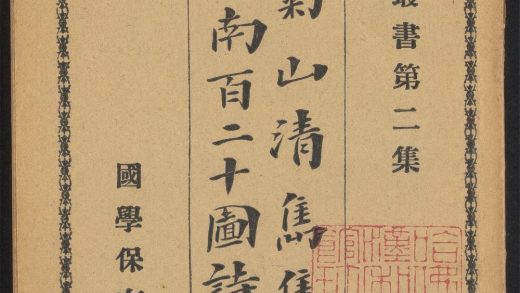 叢書第二集
菊山清雋集
南百二十圖詩
國學保